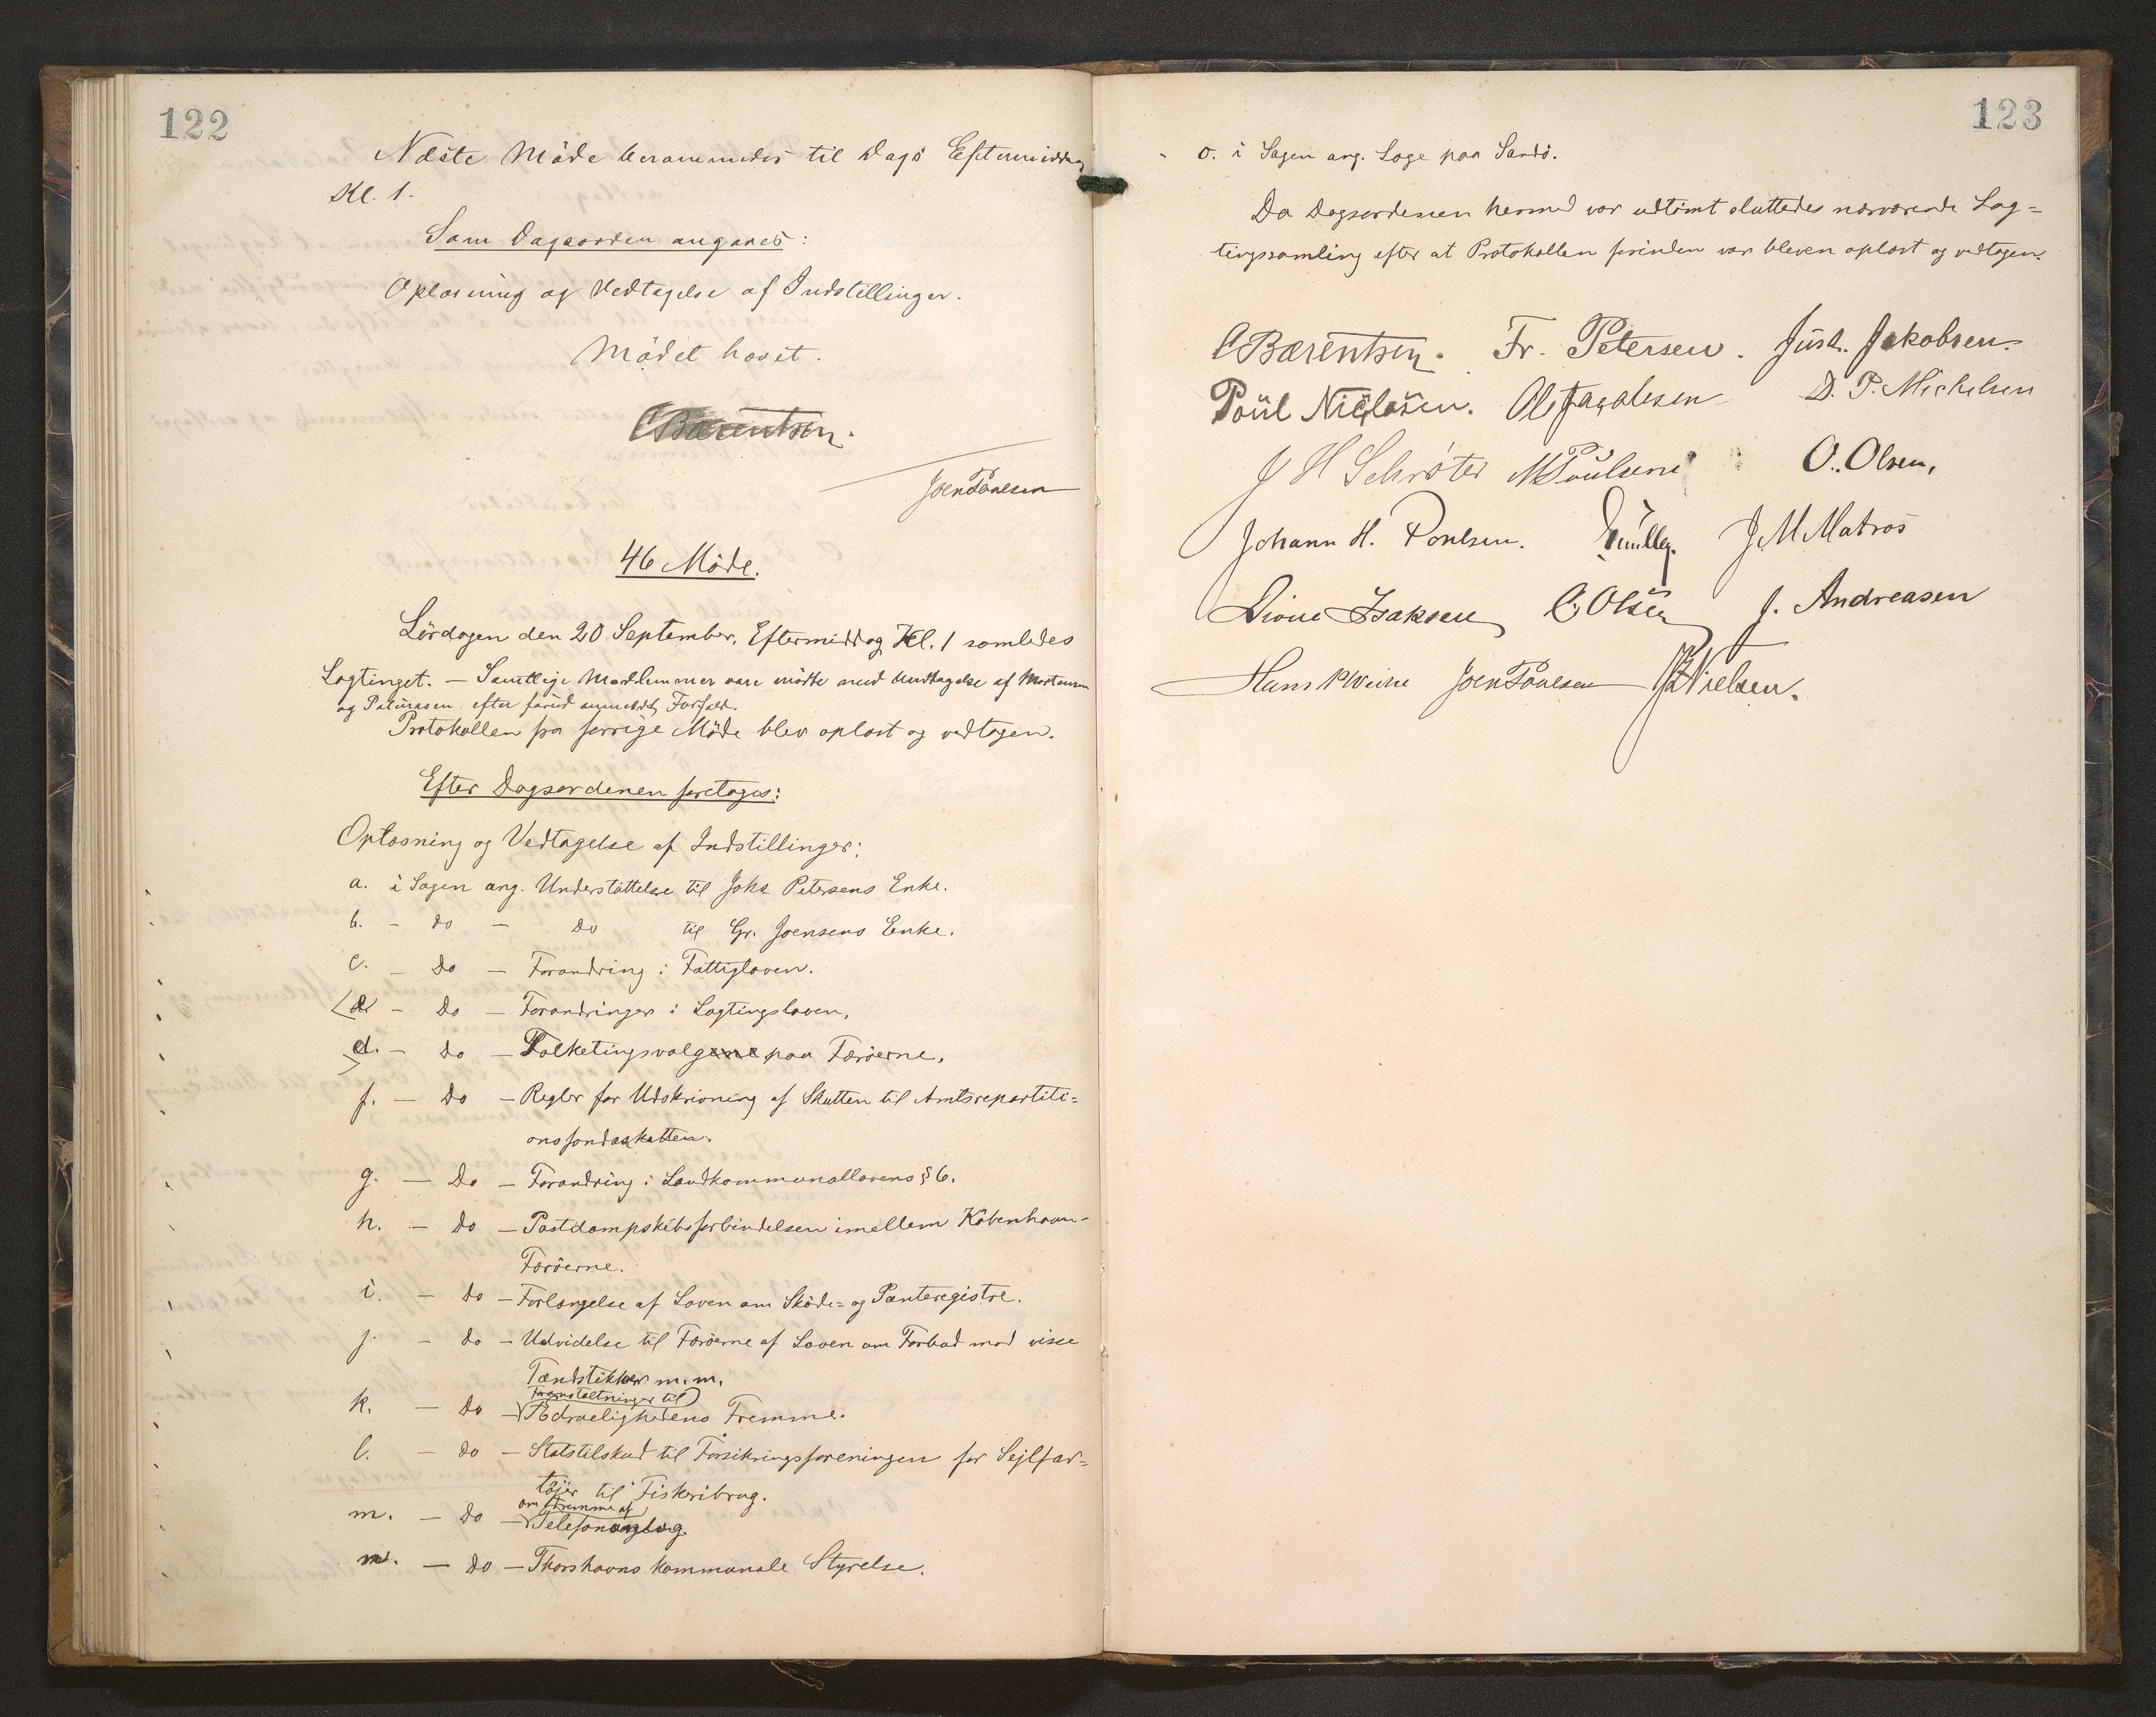 122
Næste Møde berammedes til Dags Eftermiddag
Kl. 1.
Som Dagsorden angaves:
Oplæsning og Vedtagelse af Indstillinger.
Mødet hævet.
CBærentsen.
Joen Poulsen
46 Møde.
Lørdagen den 20 September, Eftermiddag Kl. 1 samledes
Lagtinget. — Samtlige Medlemmer vare mødte med Undtagelse af Mortensen
og Patursson efter forud anmeldt Forfald.
Protokollen fra forrige Møde blev oplæst og vedtagen.
Efter Dagsordenen foretages:
Oplæsning og Vedtagelse af Indstillinger:
a. i Sagen ang. Understøttelse til Johs Petersens Enke.
b. - do - Do til Gr. Joensens Enke.
c. - Do - Forandring i Fattigloven.
d - Do - Forandringer i Lagtingsloven,
d. - Do - Folketingsvalgene paa Færøerne,
f. - Do - Regler for Udskrivning af Skatten til Amtsrepartiti=
onsfondsskatten.
g. - Do - Forandring i Landkommunallovens § 6.
h. - Do - Postdampskibsforbindelsen imellem København-
Færøerne.
i. - do - Forlængelse af Loven om Skøde= og Panteregistre.
j. - do - Udvidelse til Færøerne af Loven om Forbud mod visse
Tændstikker m.m.
Foranstaltninger til
k. - Do - Ædrueligheden​s Fremme.
l. - do - Statstilskud til Forsikringsforeningen for Sejlfar=
tøjer til Fiskeribrug.
om Fremme af
m. - Do - Telefonanlæg.
n. - Do - Thorshavns kommunale Styrelse.
123
o. i Sagen ang. Læge paa Sandø.
Da Dagsordenen hermed var udtømt sluttedes nærværende Lag=
tingssamling efter at Protokollen forinden var bleven oplæst og vedtagen.
CBærentsen. Fr. Petersen. Just. Jakobsen.
Poül Niclasen. Ole Jacobsen D. P. Michelsen
J H Schrøter M Poulsen O. Olsen,
Johann H. Poulsen. Müller. J M Matras
Dione Isaksen O. Olsen J. Andreasen
Hans P Weihe Joen Poulsen Nielsen.